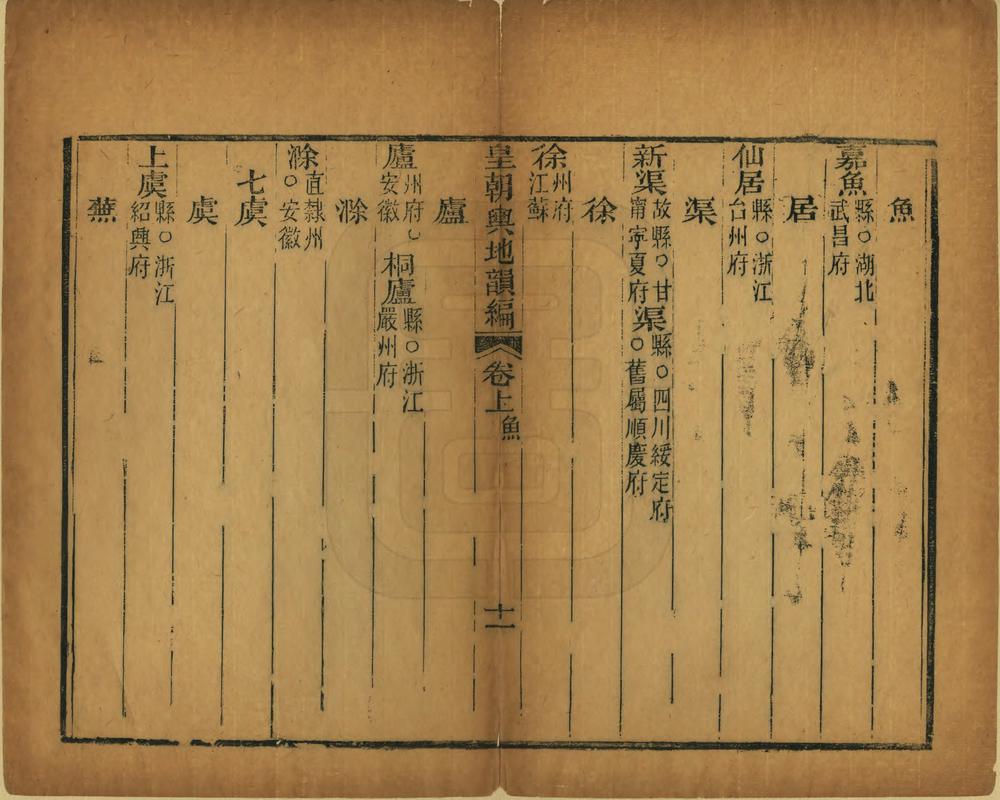 魚
嘉魚縣○湖北武昌府
居
仙居縣○浙江台州府
渠
新渠故縣○甘肅寧夏府渠縣○四川綏定府○舊屬順慶府
徐
徐州府江蘇
皇朝輿地韻編 卷上 魚 十一
廬
廬州府○安徽桐廬縣○浙江嚴州府
滁
滁直隸州○安徽
七虞
虞
上虞縣○浙江紹興府
蕪